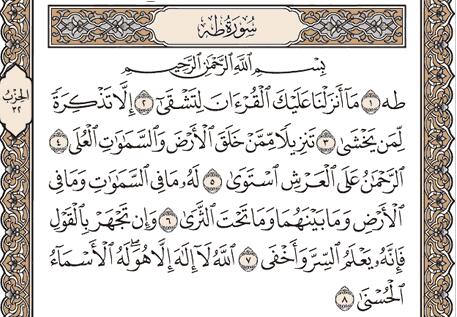 سُورَةُ طه
بِسْمِ ٱللَّهِ ٱلرَّحْمَٰنِ ٱلرَّحِيمِ
الحِزْبُ
٣٢
طه ١ مَآ أَنزَلْنَا عَلَيْكَ ٱلْقُرْءَانَ لِتَشْقَىٰٓ ٢ إِلَّا تَذْكِرَةً
لِّمَن يَخْشَىٰ ٣ تَنزِيلًا مِّمَّنْ خَلَقَ ٱلْأَرْضَ وَٱلسَّمَٰوَٰتِ ٱلْعُلَى ٤
ٱلرَّحْمَٰنُ عَلَى ٱلْعَرْشِ ٱسْتَوَىٰ ٥ لَهُۥ مَا فِى ٱلسَّمَٰوَٰتِ وَمَا فِى
ٱلْأَرْضِ وَمَا بَيْنَهُمَا وَمَا تَحْتَ ٱلثَّرَىٰ ٦ وَإِن تَجْهَرْ بِٱلْقَوْلِ
فَإِنَّهُۥ يَعْلَمُ ٱلسِّرَّ وَأَخْفَى ٧ ٱللَّهُ لَآ إِلَٰهَ إِلَّا هُوَۖ لَهُ ٱلْأَسْمَآءُ
ٱلْحُسْنَىٰ ٨